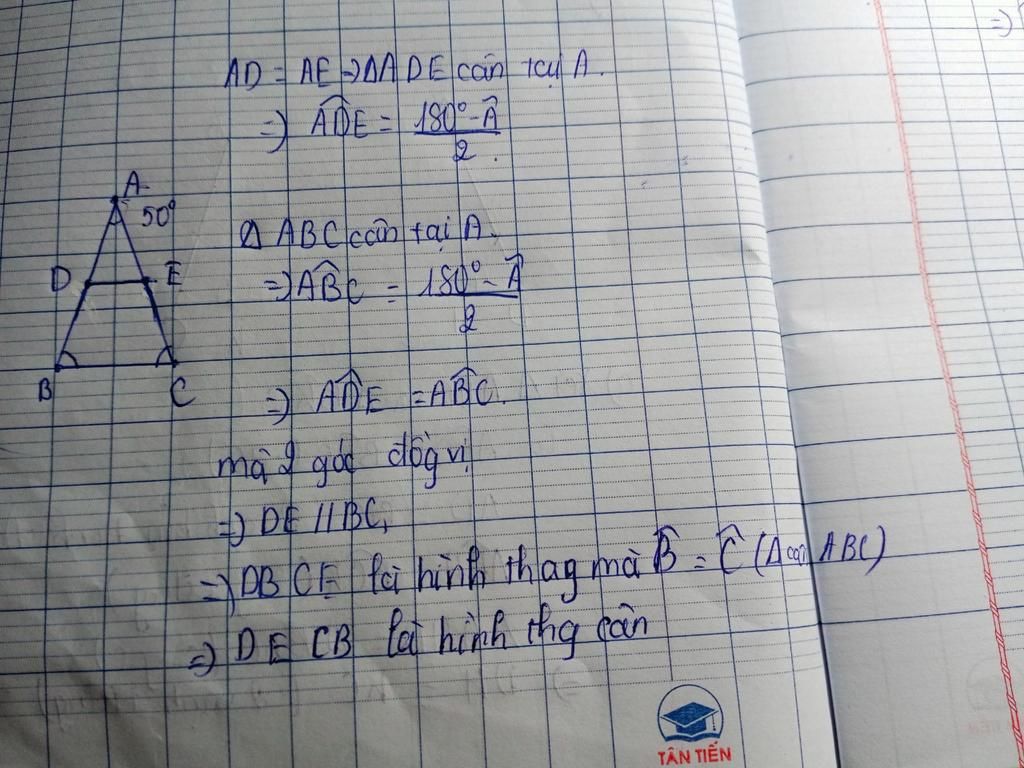 AD = AE => ΔADE cân tại A.
=> \widehat{ADE} = \frac{180° - \widehat{A}}{2}.
A
50°
Δ ABC cân tại A.
D
E
=> \widehat{ABC} = \frac{180° - \widehat{A}}{2}
B
C
=> \widehat{ADE} = \widehat{ABC}.
mà 2 góc đồg vị
=> DE // BC,
=> DBCE là hình thag mà \widehat{B} = \widehat{C} (Δ cân ABC)
=> DECB là hình thg cân
TÂN TIẾN
=>